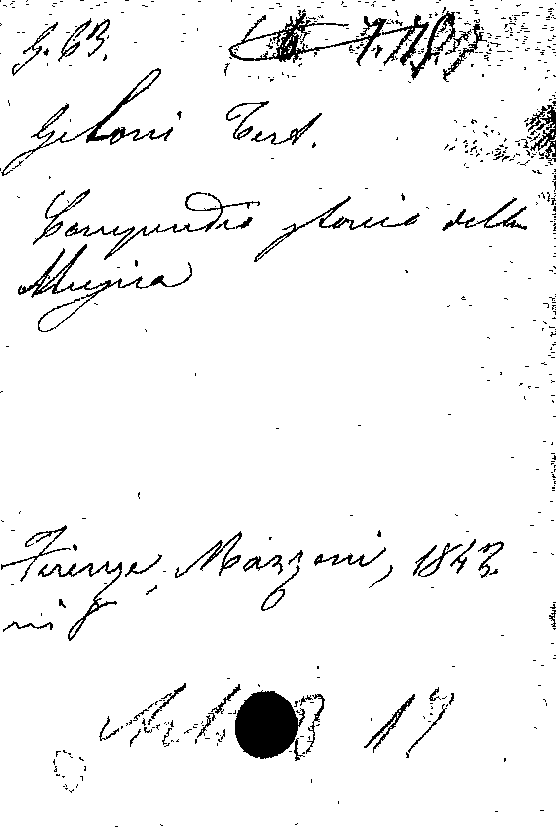 G. 63.
Geloni Ferd.
Compendio storico della
Musica
Firenze, Mazzoni, 1843
in 8
17